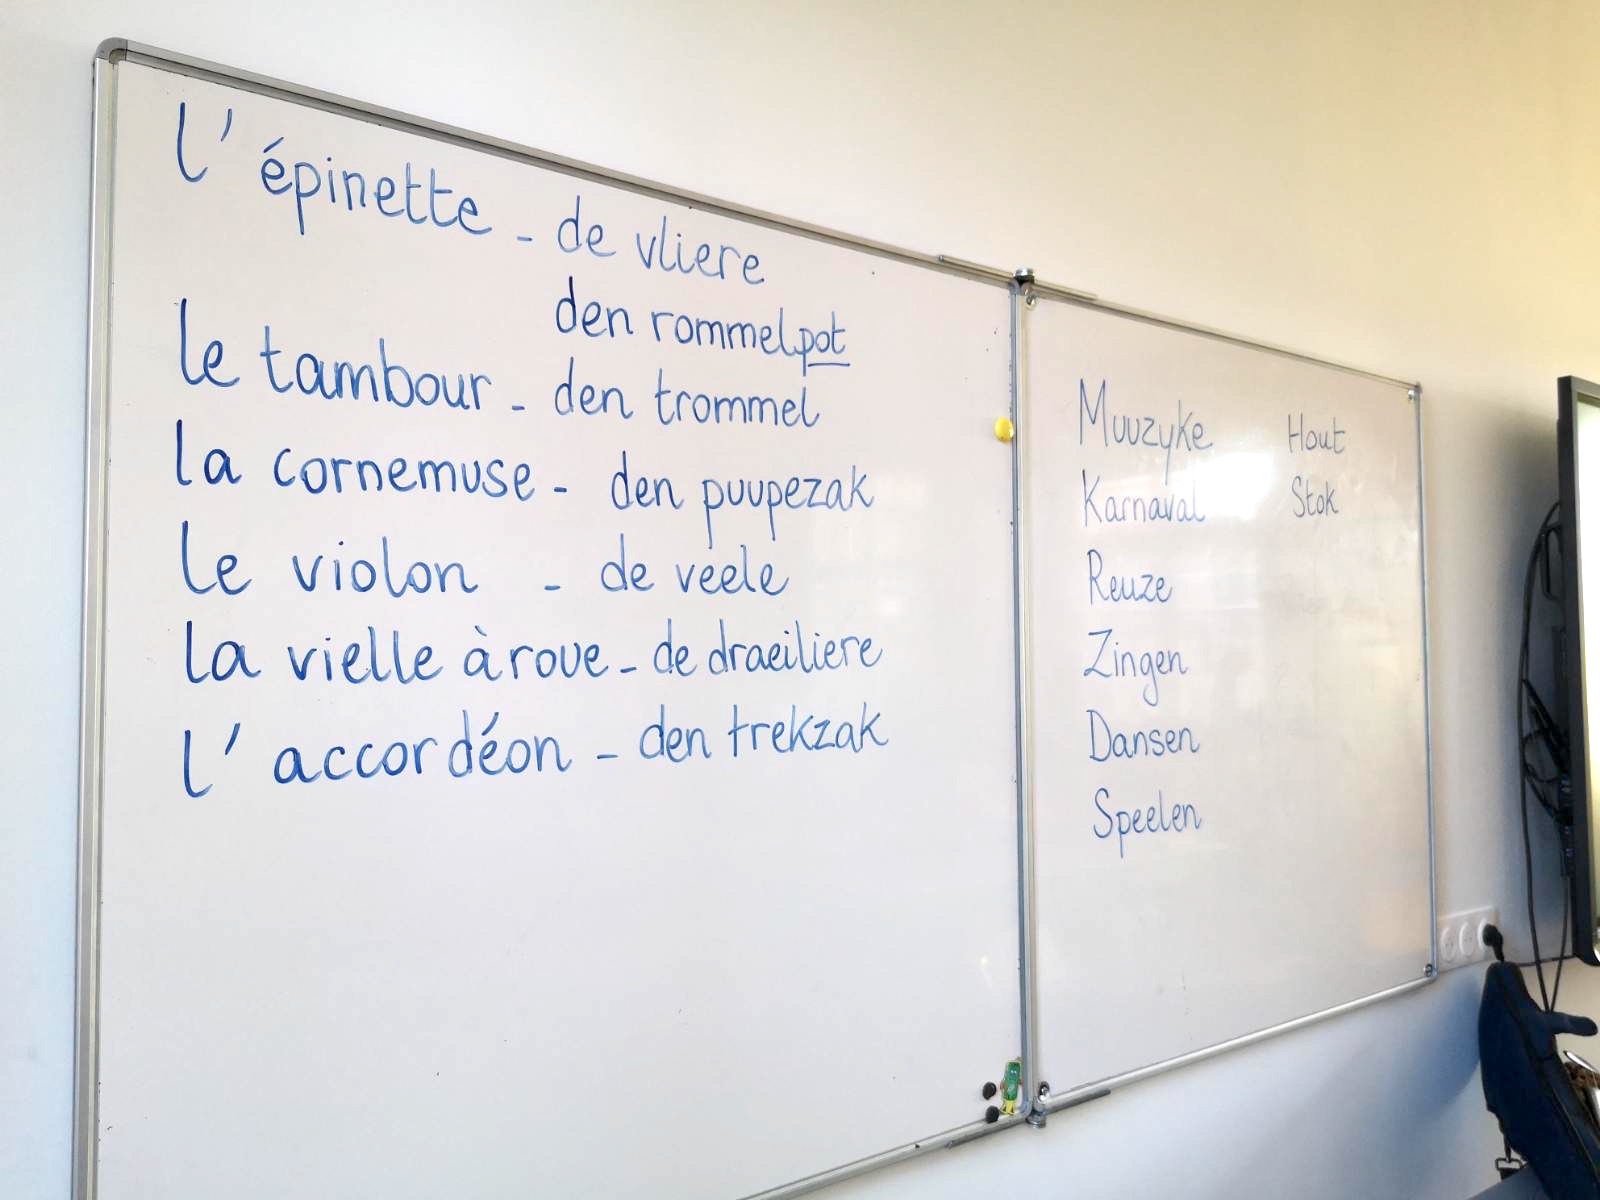 l' épinette - de vliere
den rommelpot
le tambour - den trommel
la cornemuse - den puupezak
le violon - de veele
la vielle à roue - de draeiliere
l' accordéon - den trekzak
Muuzyke Hout
Karnaval Stok
Reuze
Zingen
Dansen
Speelen